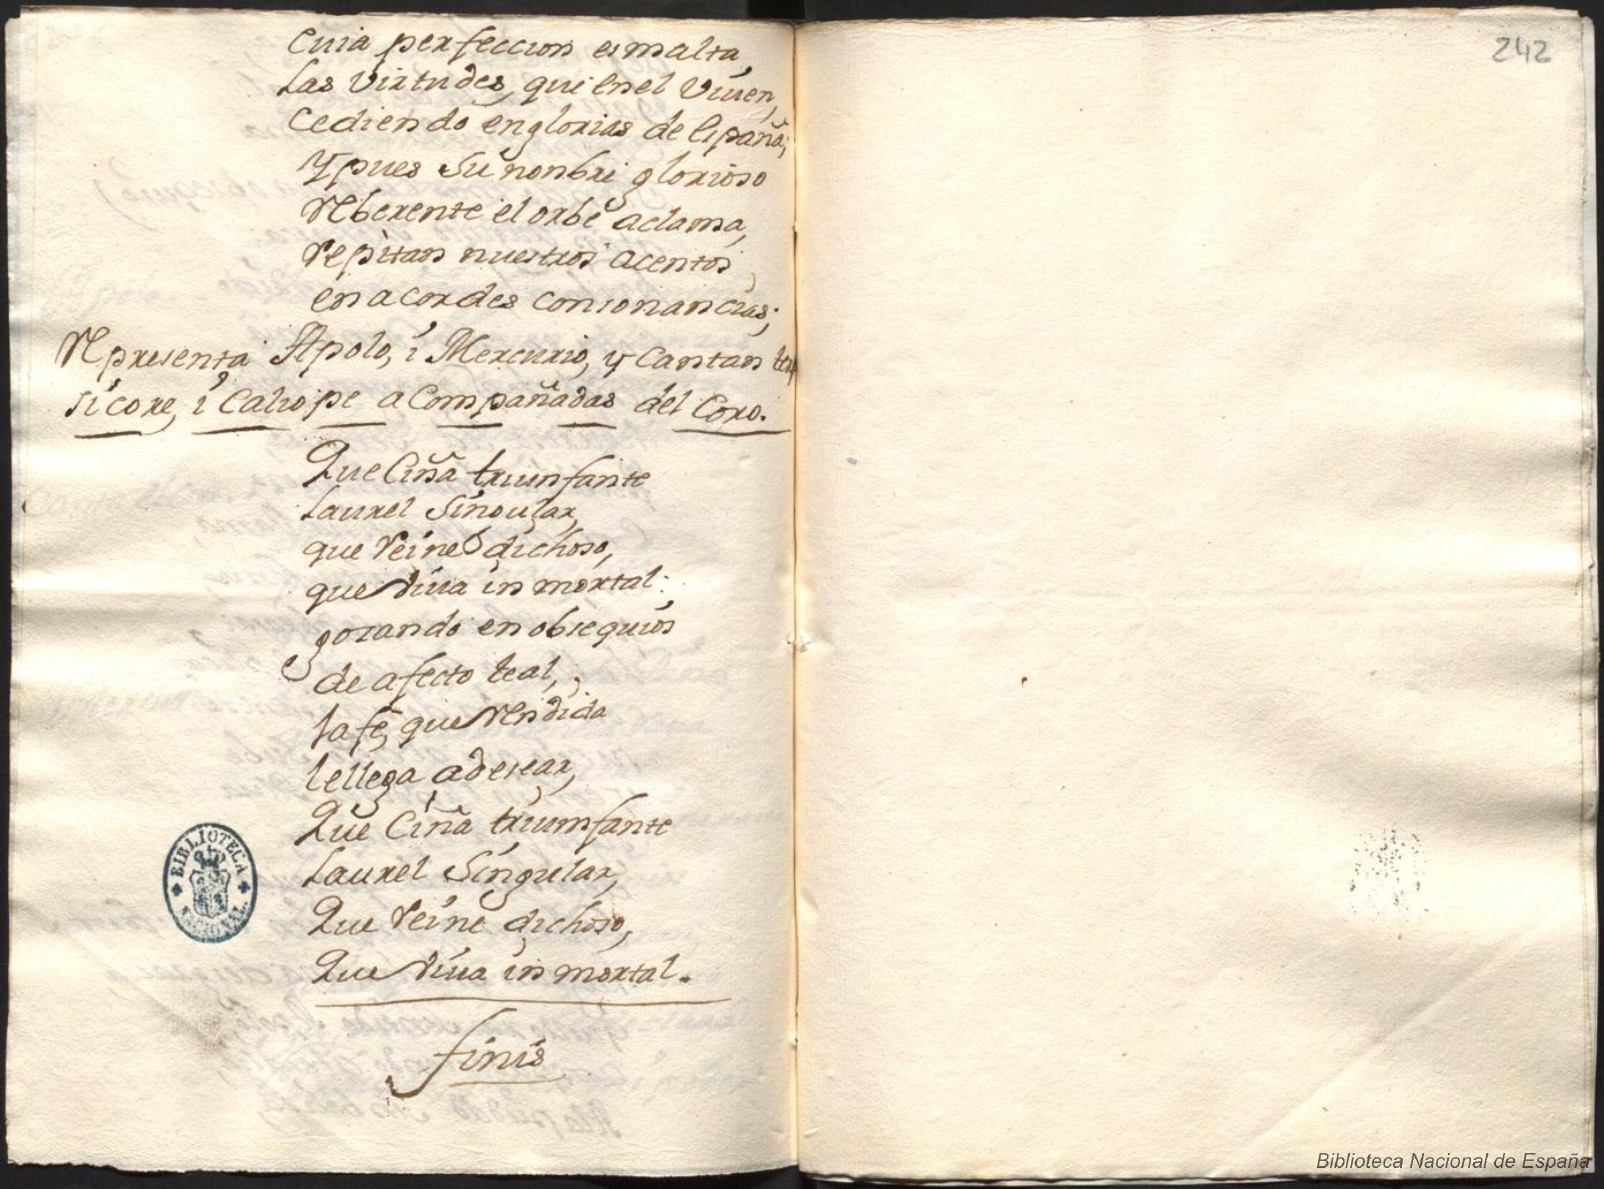 Cuia perfeccion esmalta
Las Virtudes, que en el Viuen,
Cediendo en glorias de España;
Y pues Su nonbre glorioso
Reberente el orbe aclama,
repitan nuestros acentos
en acordes consonancias;
Representa Apolo, i Mercurio, y Cantan terp
sicore, i Caliope acompañadas del Coro.
Que Ciña triunfante
Laurel Singular,
que Reine dichoso,
que Viua inmortal:
gozando en obsequios
de afecto leal,
la fe, que Rendida
le llega a desear,
Que Ciña triumfante
Laurel Singular,
Que Reine dichoso,
Que Viua inmortal.
finis
BIBLIOTECA NACIONAL
242
Biblioteca Nacional de España